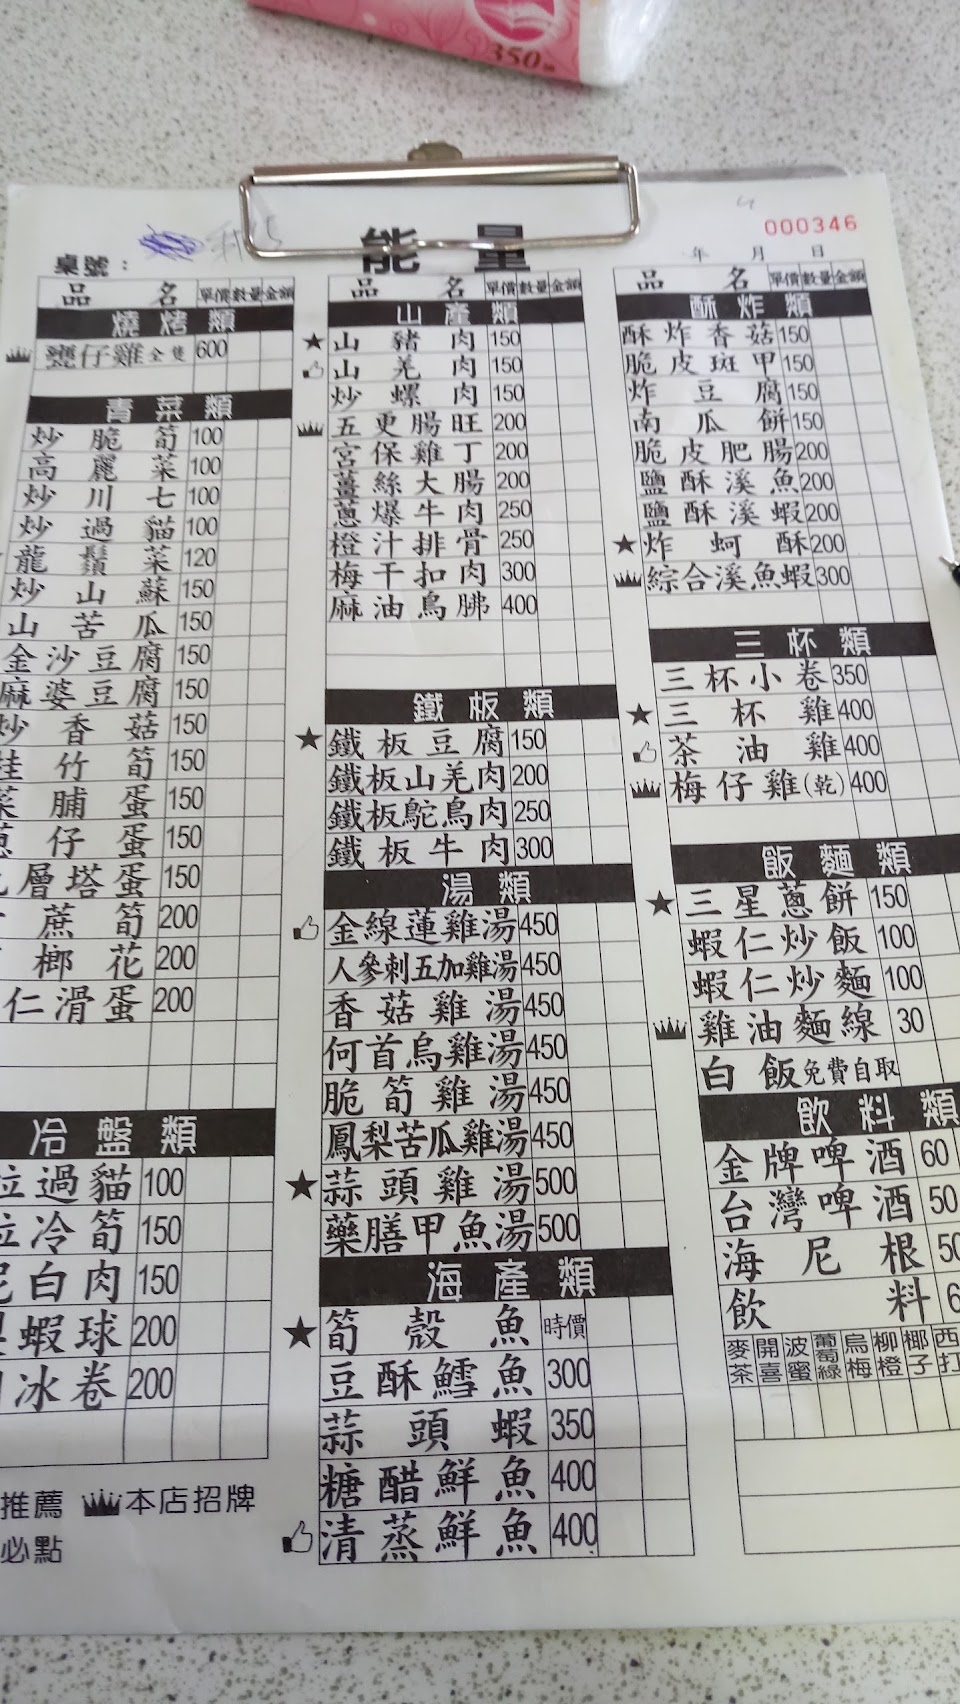 350
000346
能量
桌號：
年 月 日
品名 單價 數量 金額
燒烤類
甕仔雞全隻 600
青菜類
炒脆筍 100
高麗菜 100
炒川七 100
炒過貓 100
龍鬚菜 120
炒山蘇 150
山苦瓜 150
金沙豆腐 150
麻婆豆腐 150
炒香菇 150
桂竹筍 150
菜脯蛋 150
蔥仔蛋 150
層塔蛋 150
蔗筍 200
榔花 200
仁滑蛋 200
冷盤類
過貓 100
冷筍 150
白肉 150
蝦球 200
冰卷 200
推薦 本店招牌
必點
品名 單價 數量 金額
山產類
山豬肉 150
山羌肉 150
炒螺肉 150
五更腸旺 200
宮保雞丁 200
薑絲大腸 200
蔥爆牛肉 250
橙汁排骨 250
梅干扣肉 300
麻油鳥胇 400
鐵板類
鐵板豆腐 150
鐵板山羌肉 200
鐵板鴕鳥肉 250
鐵板牛肉 300
湯類
金線蓮雞湯 450
人參刺五加雞湯 450
香菇雞湯 450
何首烏雞湯 450
脆筍雞湯 450
鳳梨苦瓜雞湯 450
蒜頭雞湯 500
藥膳甲魚湯 500
海產類
筍殼魚 時價
豆酥鱈魚 300
蒜頭蝦 350
糖醋鮮魚 400
清蒸鮮魚 400
品名 單價 數量 金額
酥炸類
酥炸香菇 150
脆皮斑甲 150
炸豆腐 150
南瓜餅 150
脆皮肥腸 200
鹽酥溪魚 200
鹽酥溪蝦 200
炸蚵酥 200
綜合溪魚蝦 300
三杯類
三杯小卷 350
三杯雞 400
茶油雞 400
梅仔雞(乾) 400
飯麵類
三星蔥餅 150
蝦仁炒飯 100
蝦仁炒麵 100
雞油麵線 30
白飯免費自取
飲料類
金牌啤酒 60
台灣啤酒 50
海尼根 50
飲料 6
麥茶 開喜 波蜜 葡萄綠 烏梅 柳橙 椰子 西打